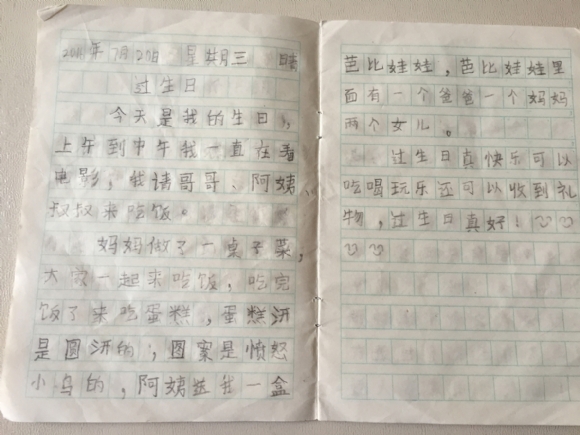 2011年7月20日 星期三 晴
过生日
今天是我的生日,
上午到中午我一直在看
电影,我请哥哥、阿姨、
叔叔来吃饭。
妈妈做了一桌子菜,
大家一起来吃饭,吃完
饭了来吃蛋糕,蛋糕
是圆的,图案是愤怒
小鸟的,阿姨送我一盒
芭比娃娃,芭比娃娃里
面有一个爸爸一个妈妈
两个女儿。
过生日真快乐可以
吃喝玩乐还可以收到礼
物,过生日真好!